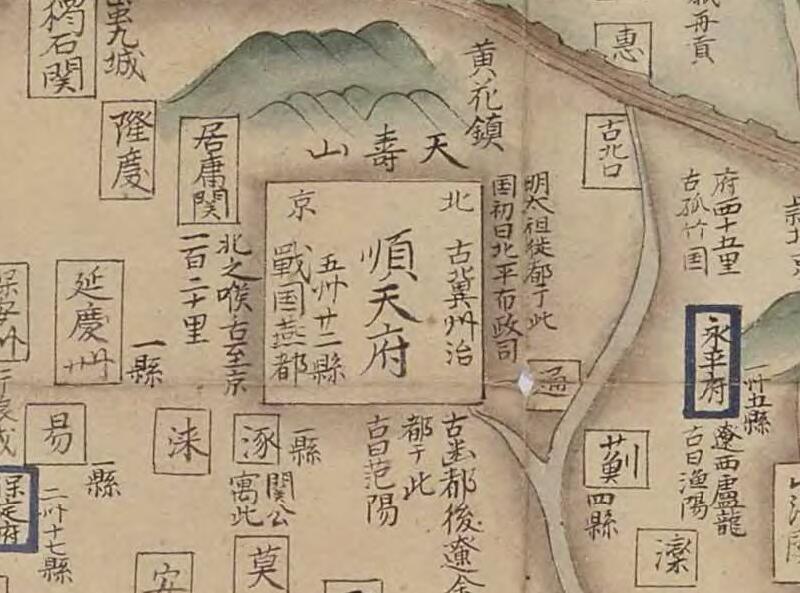 惠
古北口
黄花鎮
天壽山
九城
獨石関
隆慶
居庸関
北之喉古至京
一百二十里
北京
古冀州治
順天府
五州廿二縣
戰国燕都
明太祖徙都于此
国初曰北平布政司
府西十五里
古孤竹国
永平府
一州五縣
遼西盧龍
古曰漁陽
通
薊
四縣
灤
古幽都後遼金
都于此
古曰范陽
涿
一縣
関公
寓此
淶
延慶州
一縣
易
一縣
保定府
二州十七縣
莫
安